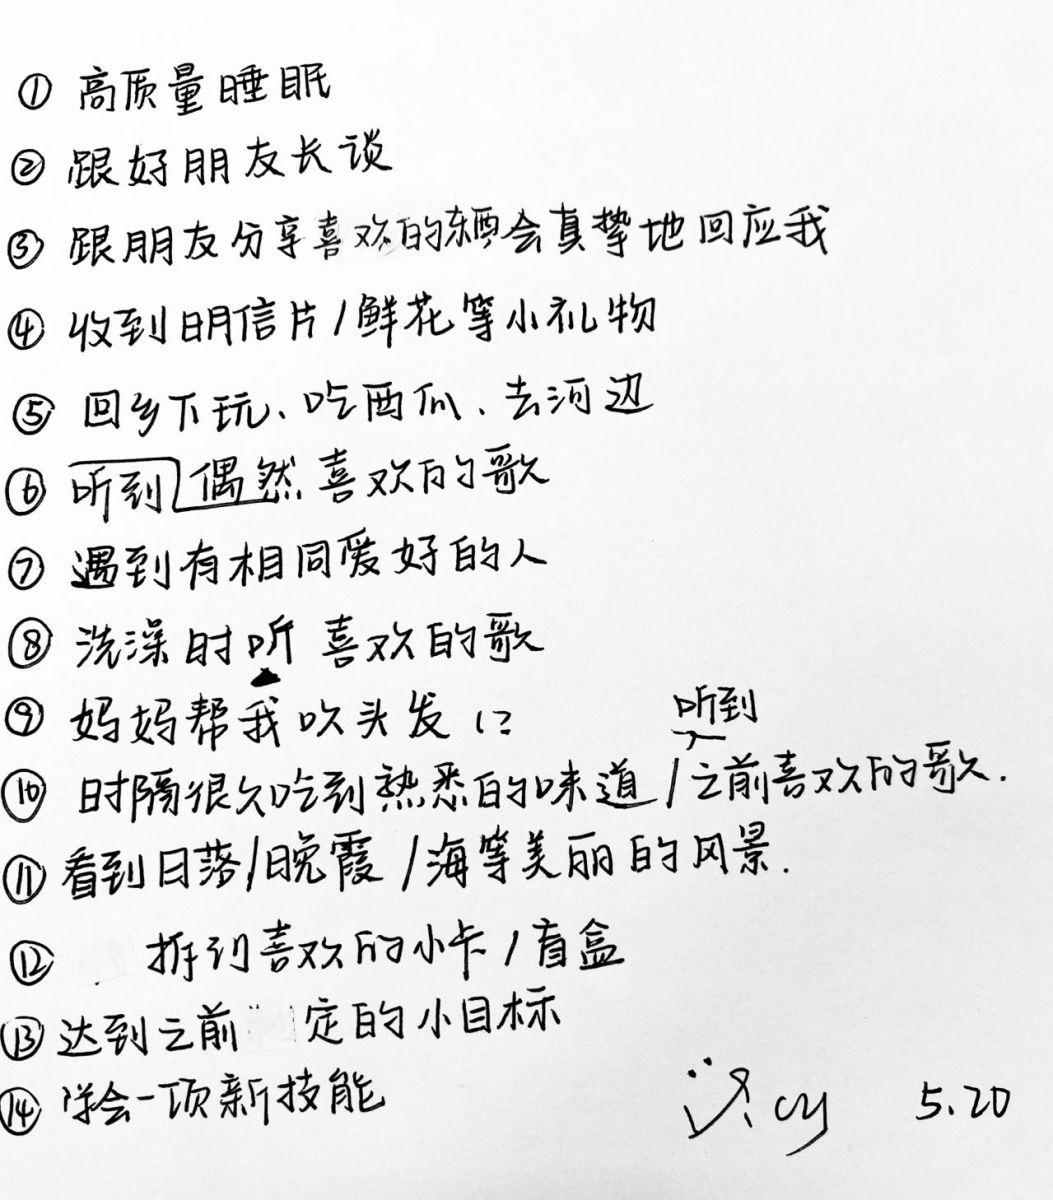 ① 高质量睡眠
② 跟好朋友长谈
③ 跟朋友分享喜欢的东西会真挚地回应我
④ 收到明信片/鲜花等小礼物
⑤ 回乡下玩、吃西瓜、去河边
⑥ 听到偶然喜欢的歌
⑦ 遇到有相同爱好的人
⑧ 洗澡时听喜欢的歌
⑨ 妈妈帮我吹头发
听到
⑩ 时隔很久吃到熟悉的味道/之前喜欢的歌.
⑪ 看到日落/晚霞/海等美丽的风景.
⑫ 拆到喜欢的小卡/盲盒
⑬ 达到之前 定的小目标
⑭ 学会一项新技能
cy 5.20